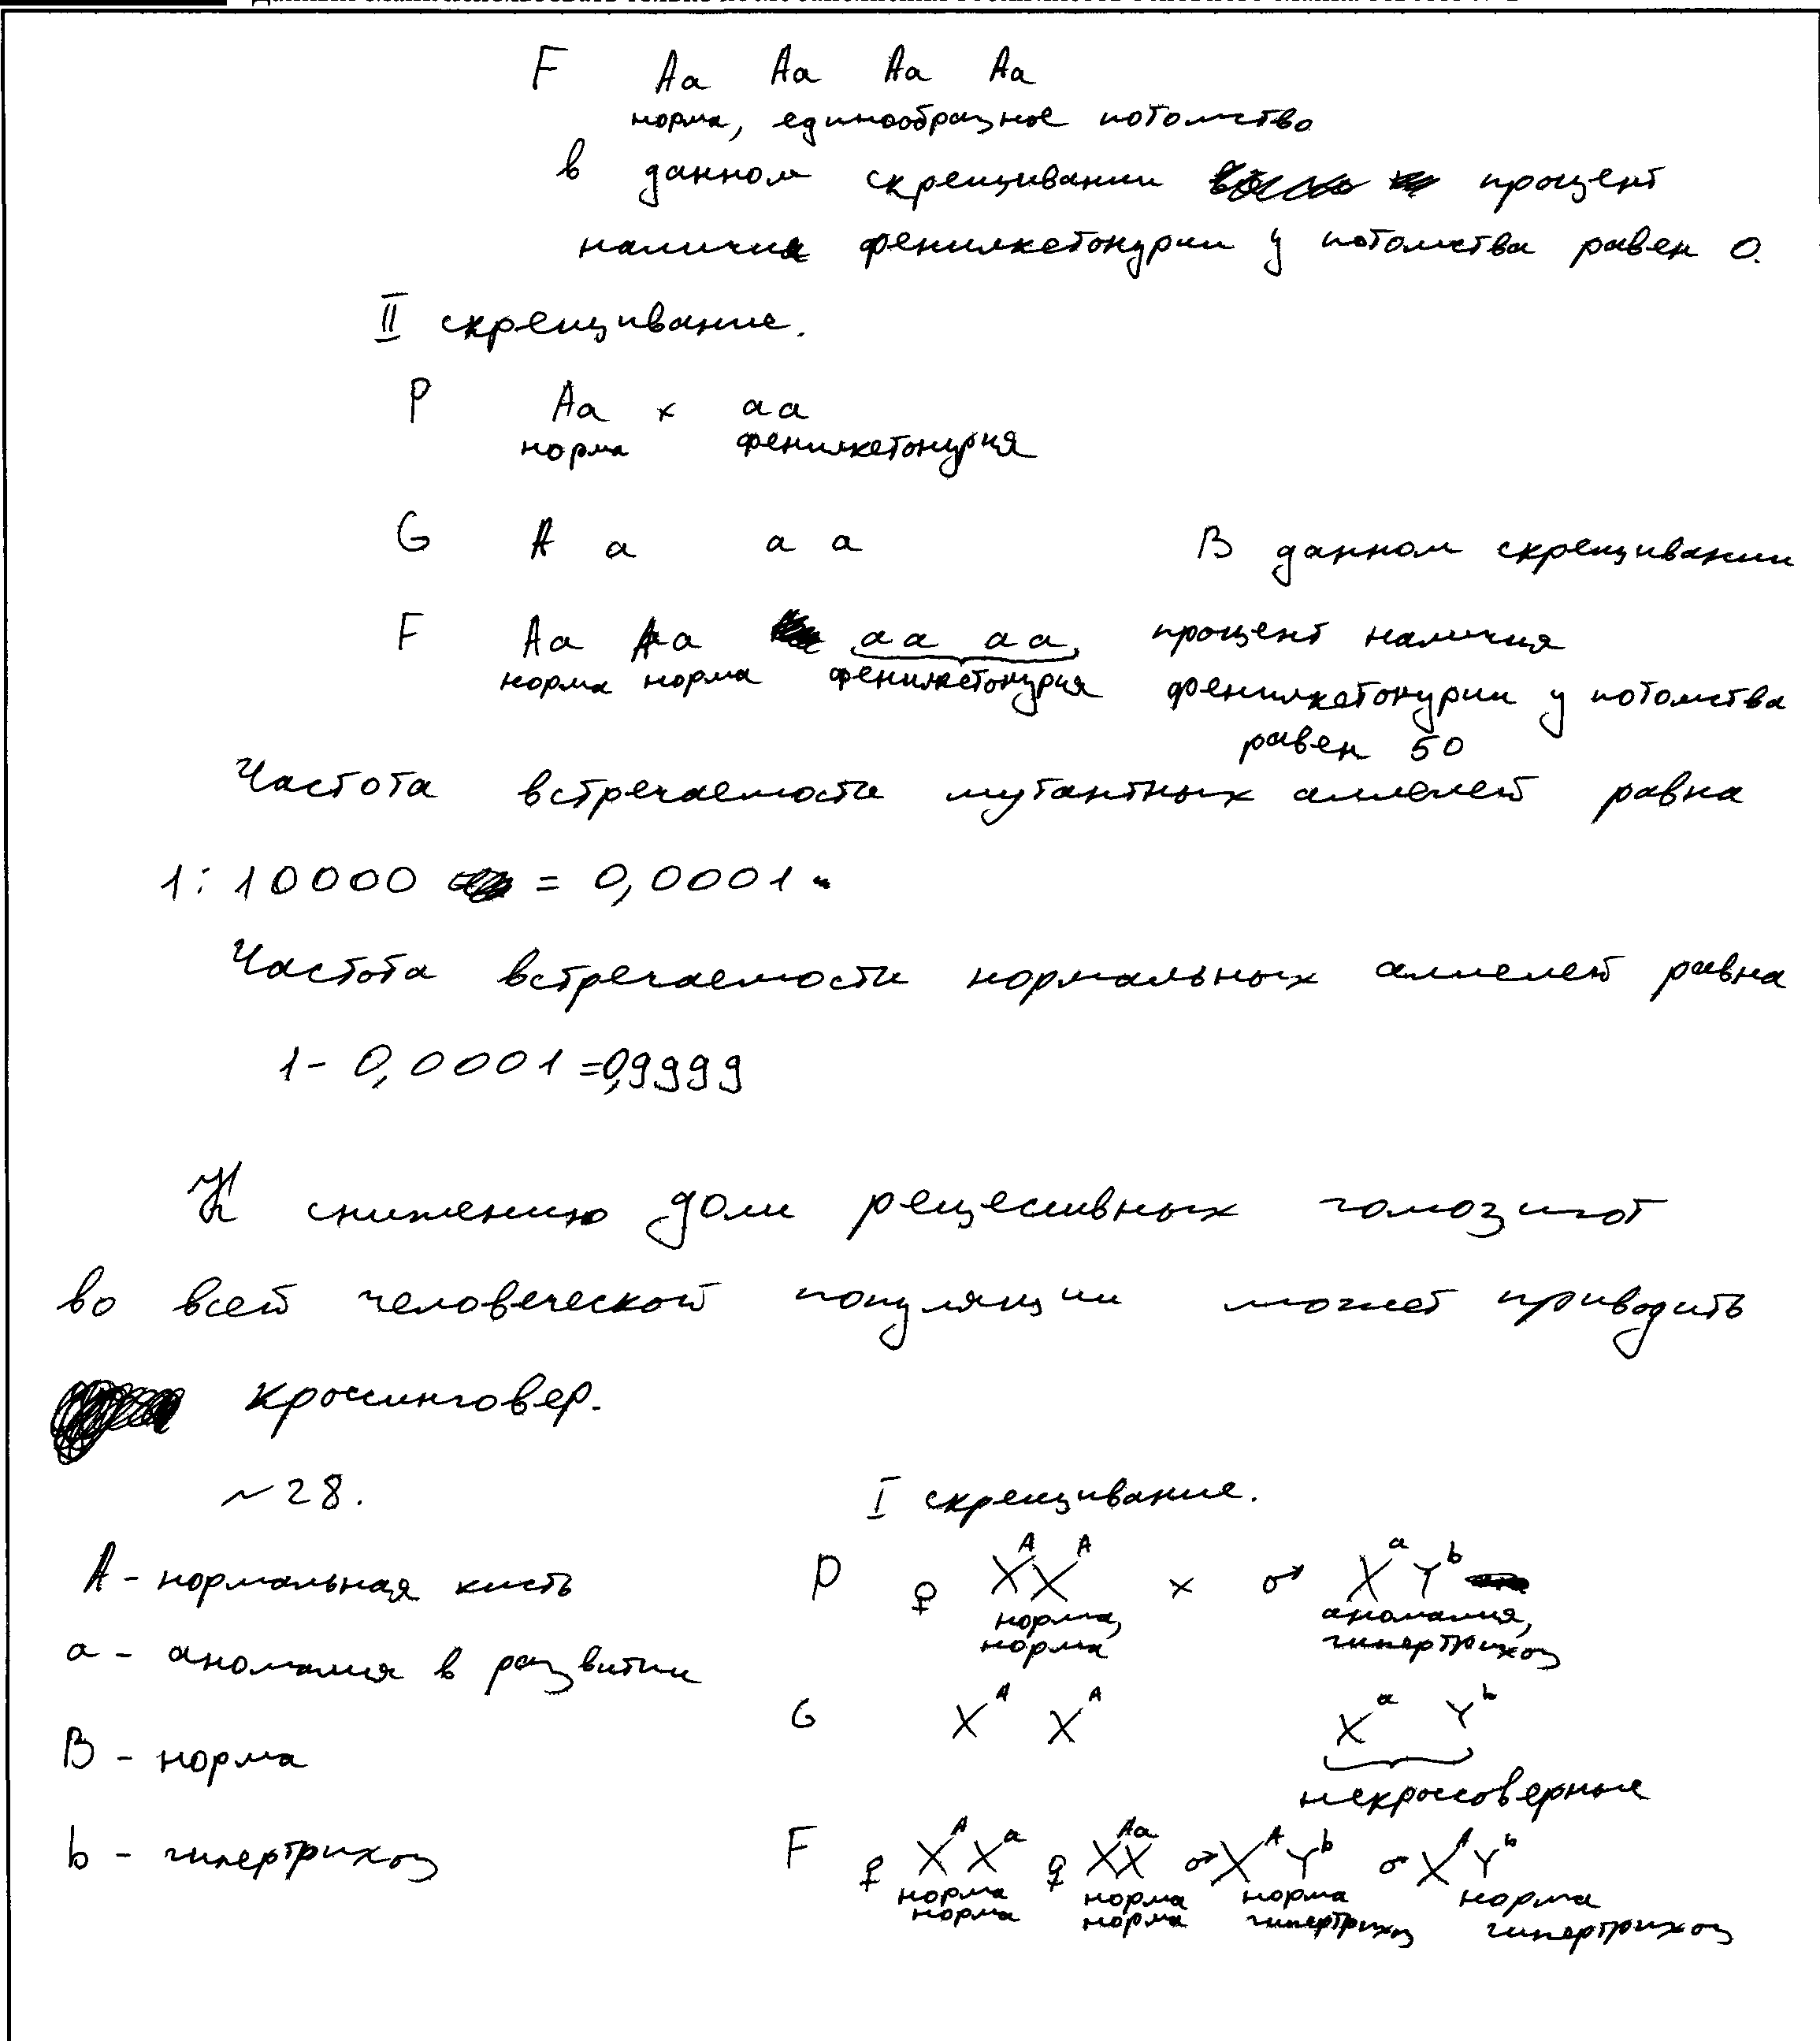 F Aa Aa Aa Aa
норма, единообразное потомство
в данном скрещивании процент
наличия фенилкетонурии у потомства равен 0.
II скрещивание.
P Aa x aa
норма фенилкетонурия
G A a a a В данном скрещивании
F Aa Aa aa aa процент наличия
норма норма фенилкетонурия фенилкетонурии у потомства
равен 50
Частота встречаемости мутантных аллелей равна
1:10000 = 0,0001
Частота встречаемости нормальных аллелей равна
1 - 0,0001 = 0,9999
К снижению доли рецессивных гомозигот
во всей человеческой популяции может приводить
кроссинговер.
~28. I скрещивание.
A - нормальная кисть P ♀ XᴬXᴬ x ♂ XᵃYᵇ
норма, аномалия,
норма гипертрихоз
a - аномалия в развитии
G Xᴬ Xᴬ Xᵃ Yᵇ
B - норма
некроссоверные
b - гипертрихоз F ♀ XᴬXᵃ ♀ XᴬXᵃ ♂ XᴬYᵇ ♂ XᴬYᵇ
норма норма норма норма
норма норма гипертрихоз гипертрихоз